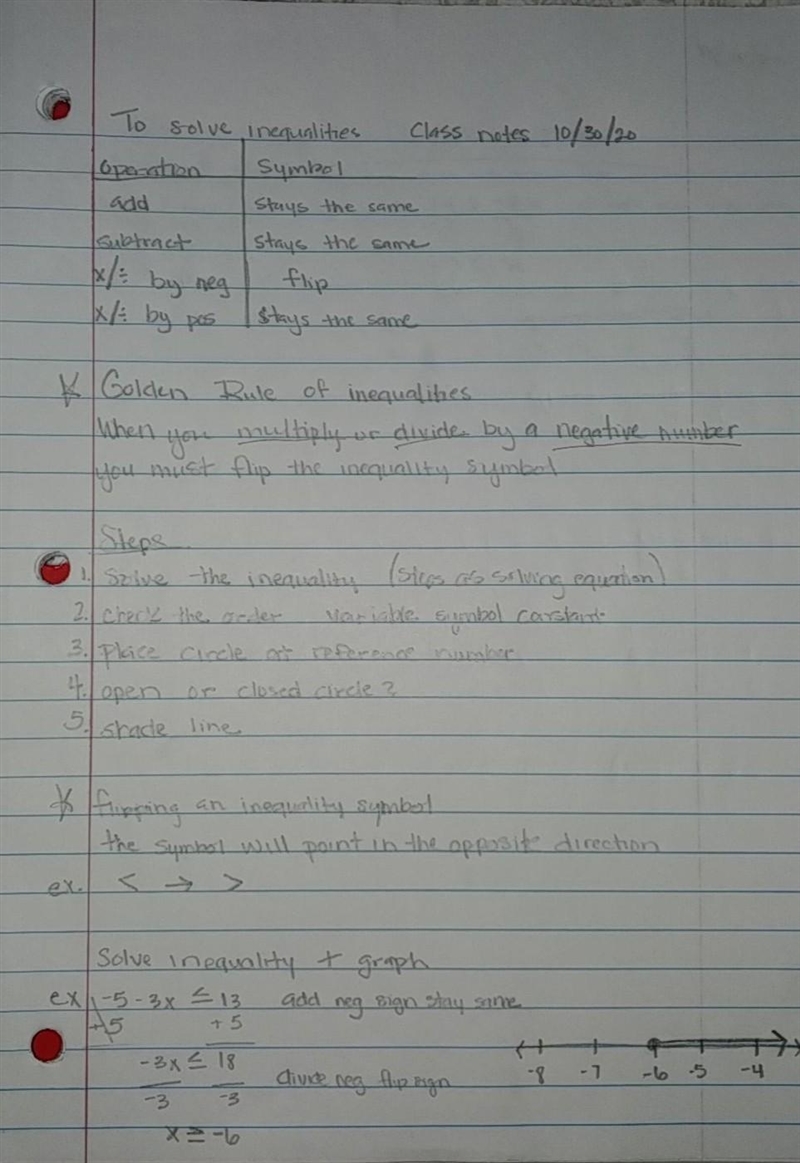 To solve inequalities Class notes 10/30/20
Operation Symbol
add stays the same
subtract stays the same
x/÷ by neg flip
x/÷ by pos stays the same
* Golden Rule of inequalities
When you multiply or divide by a negative number
you must flip the inequality symbol
Steps
1. Solve the inequality (steps as solving equation)
2. Check the order variable symbol constant
3. Place circle at reference number
4. open or closed circle?
5. shade line
* flipping an inequality symbol
the symbol will point in the opposite direction
ex. < → >
Solve inequality + graph
ex -5 - 3x ≤ 13 add neg sign stay same
+5 +5
-3x ≤ 18 divide neg flip sign
-3 -3
x ≥ -6
-8 -7 -6 -5 -4